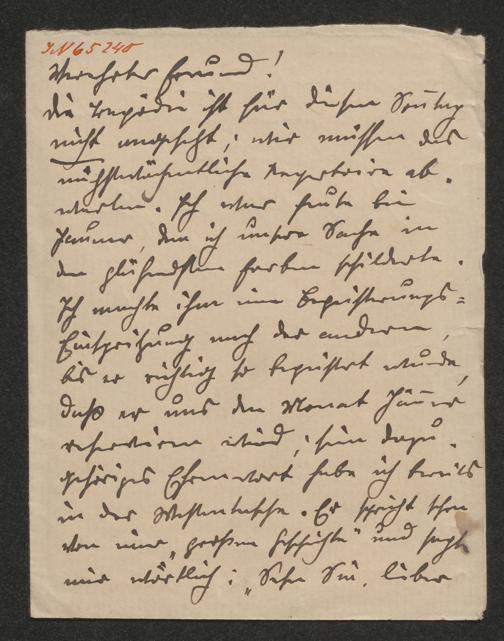 IN 65240
Verehrter Freund!
die Tragödie ist für diesen Sontag
nicht angesetzt; wir müssen das
nächstwöchentliche Repertoire ab-
warten. Ich war heute bei
Jauner, dem ich unsere Sache in
den glühendsten Farben schilderte.
Ich machte ihm eine Begeisterungs-
Einspritzung nach der anderen,
bis er richtig so begeistert wurde,
daß er uns den Monat Jänner
reserviren wird; sein dazu-
gehöriges Ehrenwort habe ich bereits
in der Westentasche. Er spricht schon
von einer „großen Geschichte" und sagt
mir wörtlich: „Sehen Sie, lieber